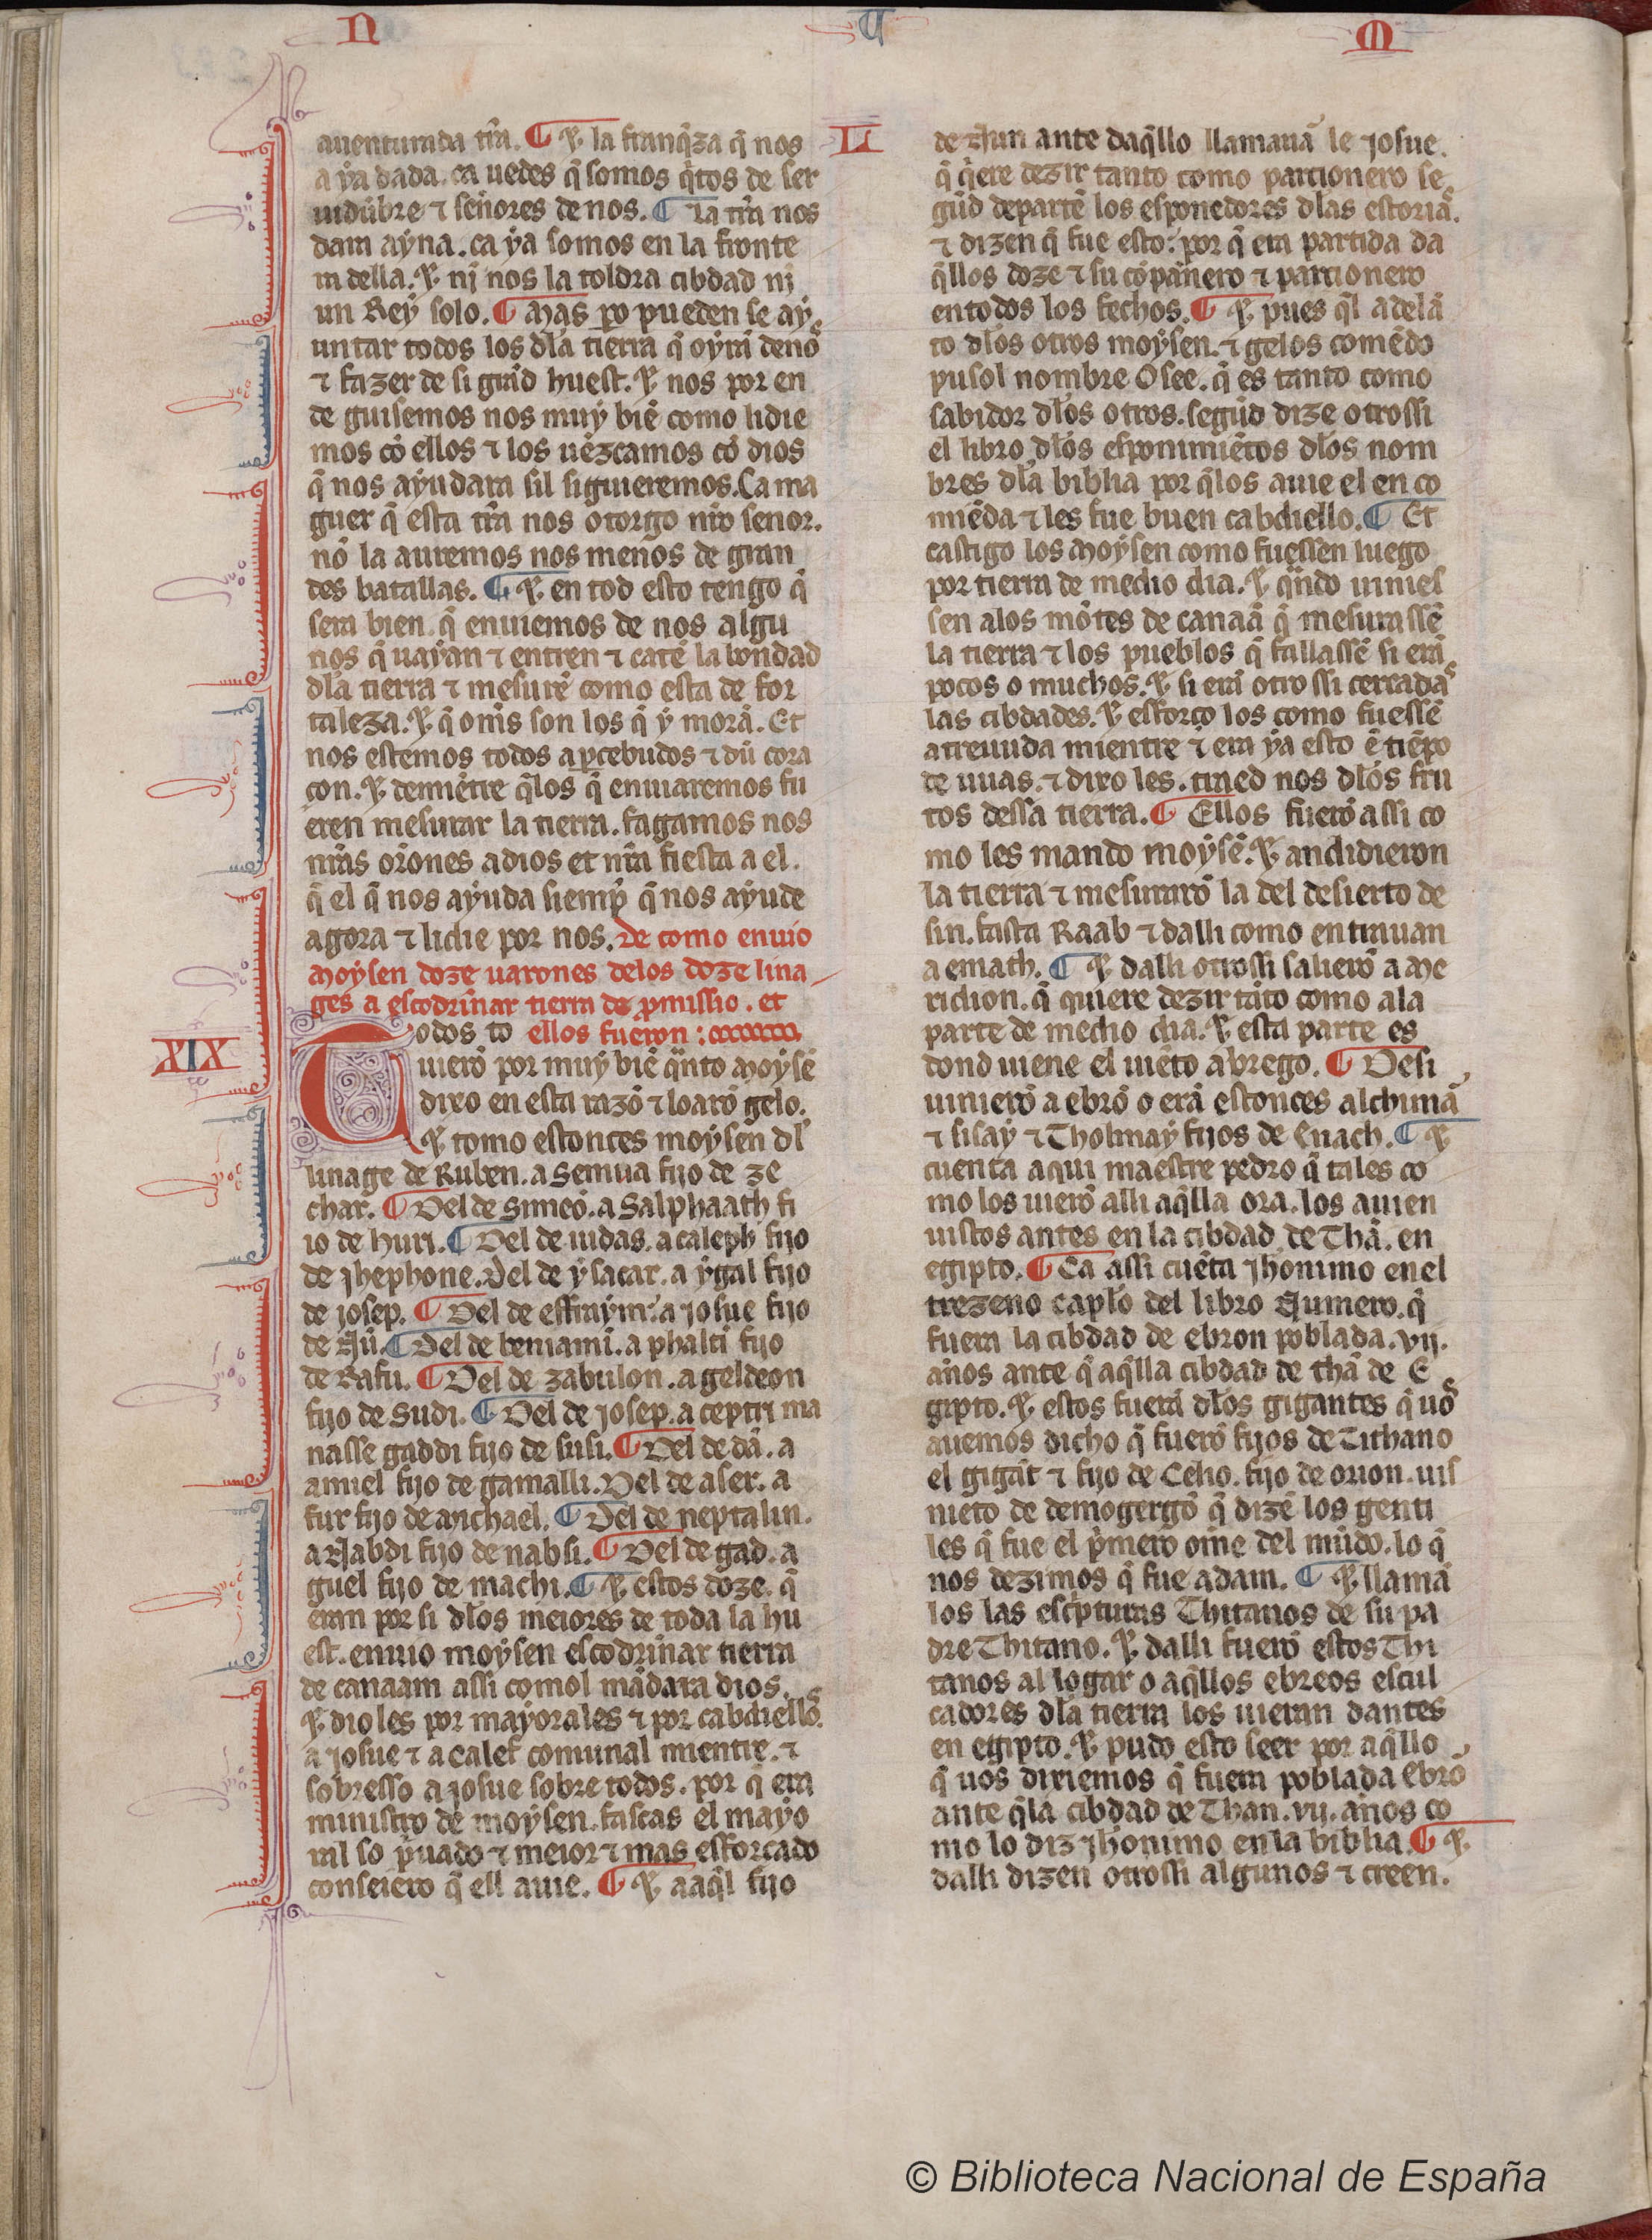 N U M
auenturada tr̃a. ¶ Et la franq̃za q̃ nos
a ya dada. ca uedes q̃ somos q̃tos de ser
uidũbre ⁊ señores de nos. ¶ La tr̃a nos
dara ayna. ca ya somos en la fronte
ra della. Et nj nos la toldra cibdad nj
un Rey solo. ¶ Mas ꝑo pueden se ay
untar todos los dl̃a tierra q̃ oyrã de nos
⁊ fazer de si grãd huest. Et nos por en
de guisemos nos muy biẽ como lidie
mos cõ ellos ⁊ los uẽzcamos cõ dios
q̃ nos ayudara sil siguieremos. Ca ma
guer q̃ esta tr̃a nos otorgo nr̃o senor.
nõ la auremos nos menos de gran
des batallas. ¶ Et en tod esto tengo q̃
sera bien. q̃ enuiemos de nos algu
nos q̃ uayan ⁊ entren ⁊ catẽ la bondad
dl̃a tierra ⁊ mesurẽ como esta de for
taleza. Et q̃ om̃s son los q̃ y morã. Et
nos estemos todos aꝑcebudos ⁊ dũ cora
çon. Et demiẽtre q̃los q̃ enuiaremos fu
eren mesurar la tierra. fagamos nos
nr̃as or̃ones a dios et nr̃a fiesta a el.
q̃ el q̃ nos ayuda siemp̃ q̃ nos ayude
agora ⁊ lidie por nos. De como enuio
Moysen doze uarones delos doze lina
ges a escodrinar tierra de ꝓmissio. et
Todos to ellos fueron :
XIX
uierõ por muy biẽ q̃nto Moysẽ
dixo en esta razõ ⁊ loarõ gelo.
Et tomo estonces moysen dl̃
linage de Ruben. a Semua fijo de ze
char. ¶ Del de Simeõ. a Salphaath fi
io de huri. ¶ Del de iudas. a caleph fijo
de jhephone. Del de ysacar. a ygal fijo
de josep. ¶ Del de effraym. a josue fijo
de Nũ. ¶ Del de beniami. a phalti fijo
de Rafu. ¶ Del de zabulon. a geldeon
fijo de Sudi. ¶ Del de josep. a ceptri ma
nasse gaddi fijo de susi. ¶ Del de dã. a
amiel fijo de gamalli. Del de aser. a
fur fijo de Michael. ¶ Del de neptalin.
a Nabdi fijo de nabsi. ¶ Del de gad. a
guel fijo de machi. ¶ Et estos doze. q̃
eran por si dl̃os meiores de toda la hu
est. enuio moysen escodrinar tierra
de canaam assi comol mãdara dios.
Et dioles por mayorales ⁊ por cabdiellos.
a josue ⁊ a Calef comunal mientre. ⁊
sobresso a josue sobre todos. por q̃ era
ministro de moysen. fascas el mayo
ral so p̃uado ⁊ meior ⁊ mas efforçado
conseiero q̃ ell auie. ¶ Et a aq̃l fijo
LI
de Nun ante daq̃llo llamauã le josue.
q̃ q̃ere dezir tanto como parcionero se
gũd departẽ los esponedores dl̃as estorias.
⁊ dizen q̃ fue esto. por q̃ era partida da
q̃llos doze ⁊ su cõpañero ⁊ parcionero
en todos los fechos. ¶ Et pues q̃l adelã
to dl̃os otros moysen. ⁊ gelos comẽdo
pusol nombre Osee. q̃ es tanto como
sabidor dl̃os otros. segũd dize otrossi
el libro dl̃os esponimiẽtos dl̃os nom
bres dl̃a biblia por q̃los auie el en co
miẽda ⁊ les fue buen cabdiello. ¶ Et
castigo los Moysen como fuessen luego
por tierra de medio dia. Et q̃ndo uinies
sen alos mõtes de canaã q̃ mesurassẽ
la tierra ⁊ los pueblos q̃ fallassẽ si erã
pocos o muchos. Et si erã otrossi cerradas
las cibdades. Et efforço los como fuessẽ
atreuuda mientre ⁊ era ya esto ẽ tiẽpo
de uuas. ⁊ dixo les. traed nos dl̃os fru
tos dessa tierra. ¶ Ellos fuerõ assi co
mo les mando moysẽ. Et andidieron
la tierra ⁊ mesurarõ la del desierto de
sin. fasta Raab ⁊ dalli como entrauan
a emath. ¶ Et dalli otrossi salierõ a Me
ridion. q̃ quiere dezir tãto como ala
parte de medio dia. Et esta parte es
dond uiene el uiẽto abrego. ¶ Desi
uinierõ a ebrõ o erã estonces alchimã
⁊ sisay ⁊ Tholmay fijos de Enach. ¶ Et
cuenta aqui maestre pedro q̃ tales co
mo los uierõ alli aq̃lla ora. los auien
uistos antes en la cibdad de Thã. en
egipto. ¶ Ca assi cuẽta jhonimo en el
trezeno capl̃o del libro Numero. q̃
fuera la cibdad de ebron poblada. vij.
años ante q̃ aq̃lla cibdad de thã de E
gipto. Et estos fuerã dl̃os gigantes q̃ uos
auemos dicho q̃ fuerõ fijos de Tithano
el gigãt ⁊ fijo de Celio. fijo de orion. uis
nieto de demogergõ q̃ dizẽ los genti
les q̃ fue el p̃mero om̃e del mũdo. lo q̃
nos dezimos q̃ fue adam. ¶ Et llamã
los las esc̃pturas Thitanos de su pa
dre Thitano. Et dalli fuerõ estos Thi
tanos al logar o aq̃llos ebreos escul
cadores dl̃a tierra los uieran dantes
en egipto. Et pudo esto seer por aq̃llo
q̃ uos dixiemos q̃ fuera poblada ebrõ
ante q̃la cibdad de Than. vij. años co
mo lo diz jhonimo en la biblia. ¶ Et
dalli dizen otrossi algunos ⁊ creen.
© Biblioteca Nacional de España